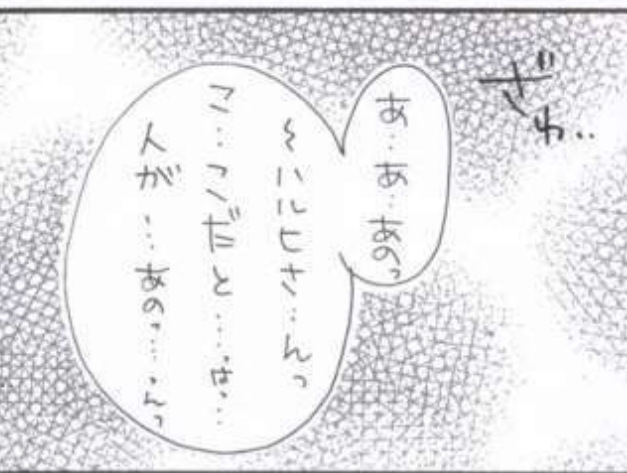 ざわ‥
あ‥あ‥あのっ
～ハルヒさ‥んっ
こ‥こだと‥‥はっ‥
人が‥‥あのっ‥‥んっ